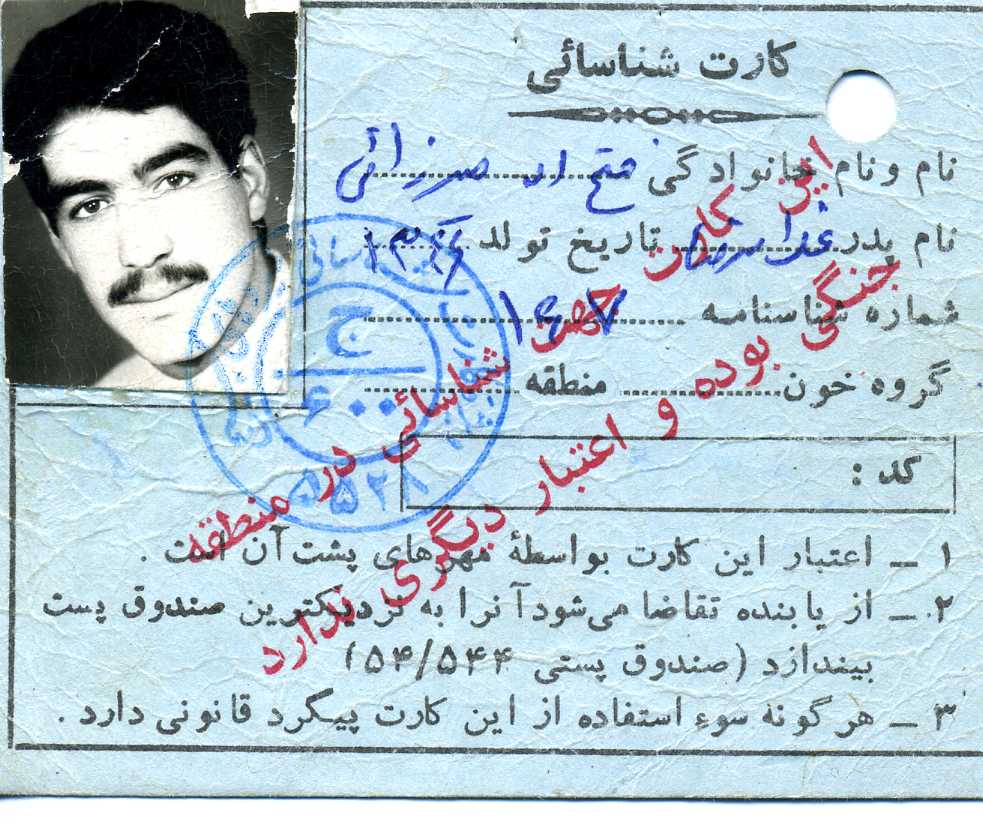 کارت شناسائی
نام و نام خانوادگی فتح اله میرزائی
نام پدر تاریخ تولد
شماره شناسنامه ۱۴۰۷
گروه خون منطقه
کد :
۱ ــ اعتبار این کارت بواسطهٔ مهرهای پشت آن است .
۲ ــ از یابنده تقاضا می‌شود آنرا به نزدیکترین صندوق پست
بیندازد (صندوق پستی ۵۴/۵۴۴)
۳ ــ هرگونه سوء استفاده از این کارت پیگرد قانونی دارد .
این کارت جهت شناسائی در منطقه
جنگی بوده و اعتبار دیگری ندارد
ج
۶۰۰
۵۵۲۸